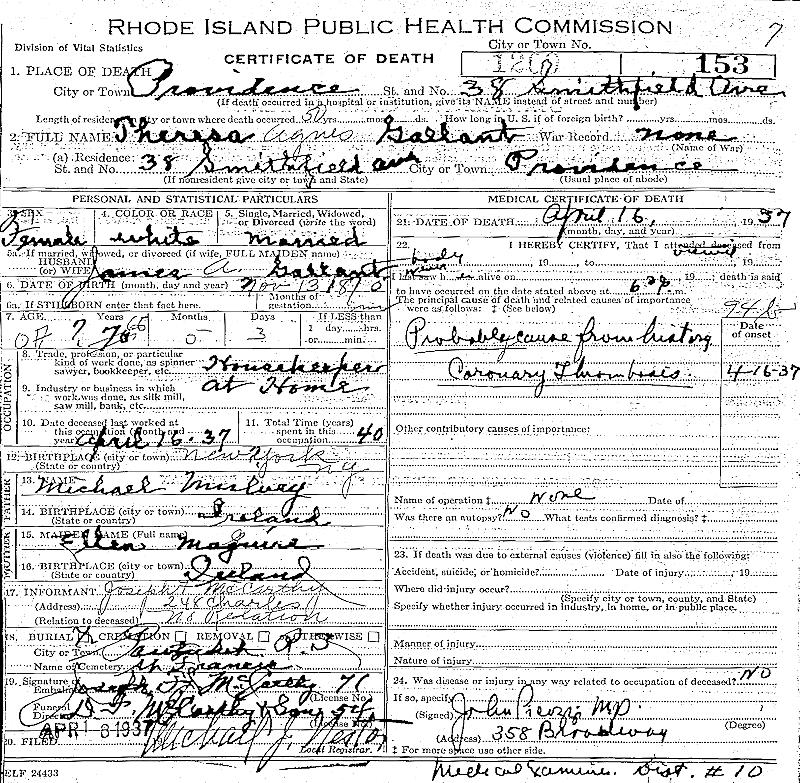 RHODE ISLAND PUBLIC HEALTH COMMISSION
7
Division of Vital Statistics
City or Town No.
CERTIFICATE OF DEATH
153
1. PLACE OF DEATH
City or Town Providence St. and No. 38 Smithfield Ave
(If death occurred in a hospital or institution, give its NAME instead of street and number)
Length of residence in city or town where death occurred yrs. mos. ds. How long in U. S. if of foreign birth? yrs. mos. ds.
2. FULL NAME Theresa Agnes Gallant War Record none
(Name of War)
(a) Residence:
St. and No. 38 Smithfield ave City or Town Providence
(If nonresident give city or town and State) (Usual place of abode)
PERSONAL AND STATISTICAL PARTICULARS
3. SEX 4. COLOR OR RACE 5. Single, Married, Widowed, or Divorced (write the word)
Female white married
5a. If married, widowed, or divorced (if wife, FULL MAIDEN name)
HUSBAND
(or) WIFE James A. Gallant
6. DATE OF BIRTH (month, day and year) Nov 13 1870
6a. If STILLBORN enter that fact here. Months of gestation
7. AGE Years Months Days If LESS than
66 5 3 1 day, hrs.
or min.
OCCUPATION
8. Trade, profession, or particular kind of work done, as spinner sawyer, bookkeeper, etc. Housekeeper
9. Industry or business in which work was done, as silk mill, saw mill, bank, etc. at Home
10. Date deceased last worked at this occupation (Month and year) april 16-37
11. Total Time (years) spent in this occupation 40
12. BIRTHPLACE (city or town) New York
(State or country) NY
FATHER
13. NAME Michael
14. BIRTHPLACE (city or town)
(State or country) Ireland
MOTHER
15. MAIDEN NAME (Full name) Ellen Maguire
16. BIRTHPLACE (city or town)
(State or country) Ireland
17. INFORMANT Joseph McCarthy
(Address) 248 Charles
(Relation to deceased) No Relation
18. BURIAL CREMATION REMOVAL OTHERWISE
City or Town Pawtucket R.I
Name of Cemetery St Francis
19. Signature of Embalmer Joseph F. McCarthy 71
(License No.)
Funeral Director D. F. McCarthy & Sons
(License No.)
APR 18 1937
20. FILED Michael J. Nestor
Local Registrar.
ELF 24433
MEDICAL CERTIFICATE OF DEATH
21. DATE OF DEATH April 16, 1937
(month, day, and year)
22. I HEREBY CERTIFY, That I attended deceased from
viewed
body
19 to 19
I last saw h alive on 19 death is said
to have occurred on the date stated above at m.
The principal cause of death and related causes of importance
were as follows: ‡ (See below)
94b
Date of onset
Probably cause from history
Coronary Thrombosis. 4-16-37
Other contributory causes of importance:
Name of operation ‡ None Date of
Was there an autopsy? No What tests confirmed diagnosis? ‡
23. If death was due to external causes (violence) fill in also the following:
Accident, suicide, or homicide? Date of injury 19
Where did injury occur?
(Specify city or town, county, and State)
Specify whether injury occurred in industry, in home, or in public place.
Manner of injury
Nature of injury
24. Was disease or injury in any way related to occupation of deceased? No
If so, specify
(Signed) John M.D.
(Degree)
(Address) 358 Broadway
‡ For more space use other side.
Medical Examiner. Dist. #10